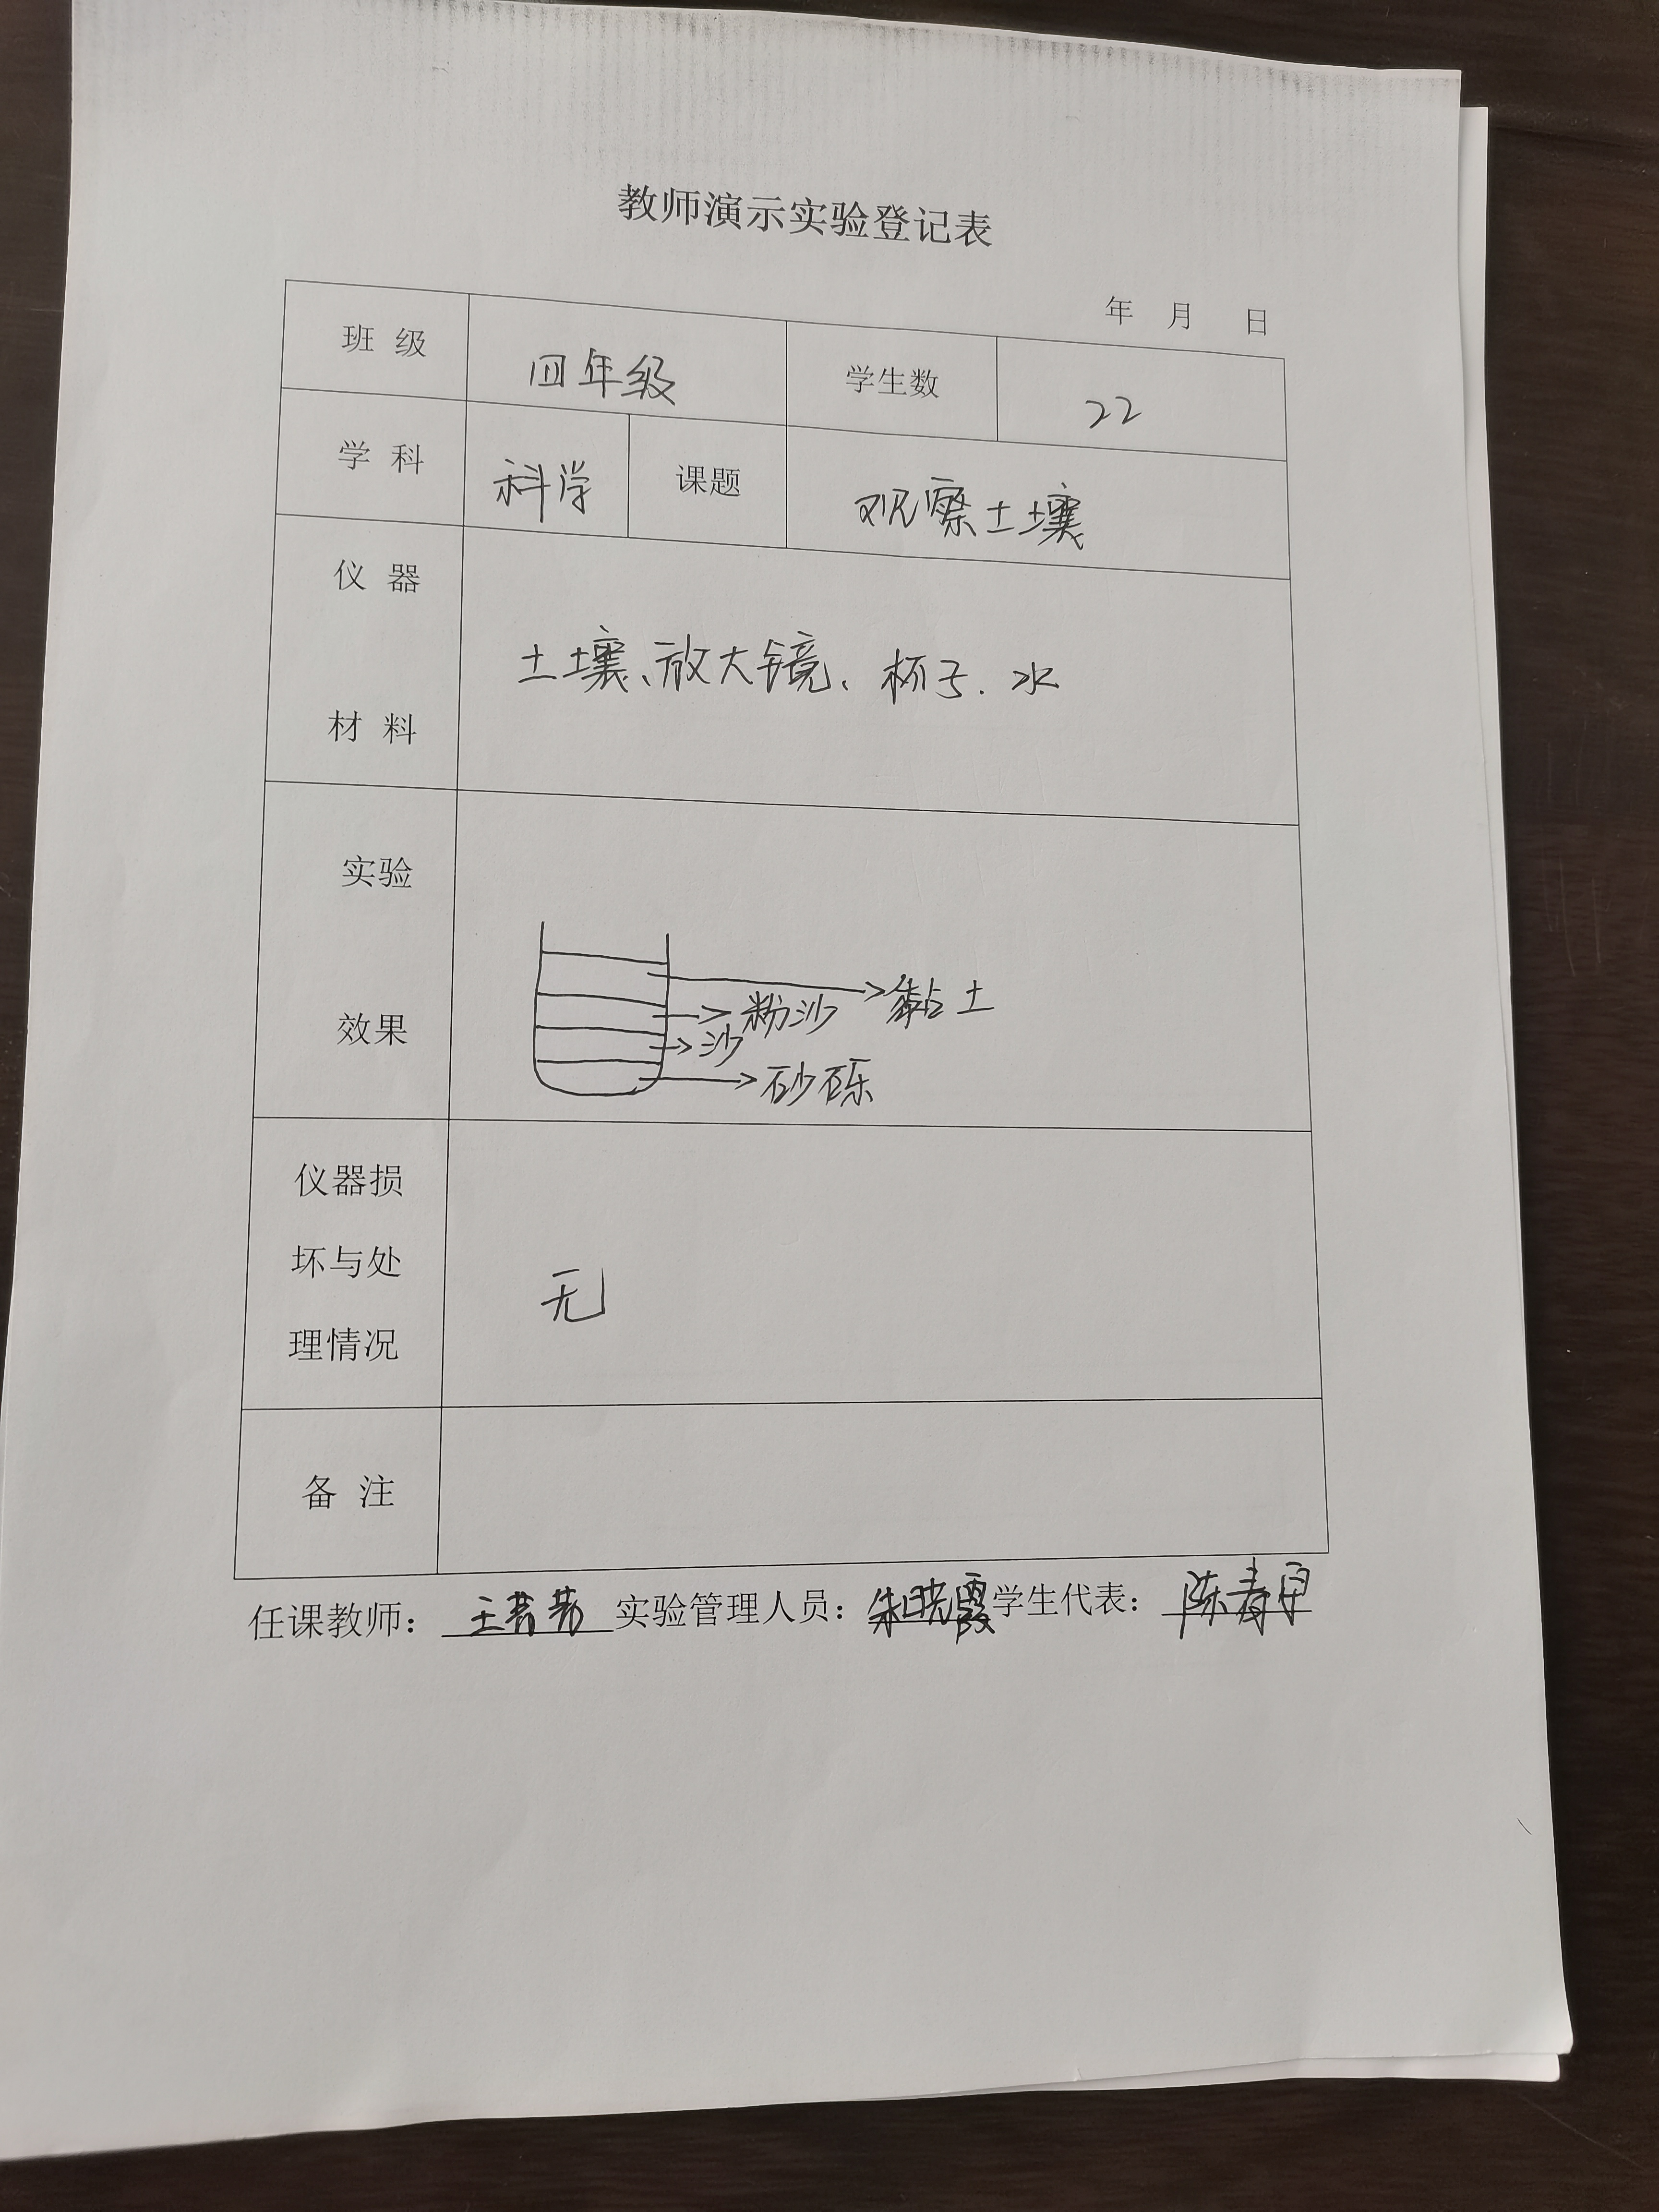 教师演示实验登记表
年 月 日
班 级 四年级 学生数 22
学 科 科学 课题 观察土壤
仪 器
材 料
土壤、放大镜、杯子、水
实验
效果
黏土
粉沙
沙
砂砾
仪器损
坏与处
理情况
无
备 注
任课教师: 王芳芳 实验管理人员: 朱晓霞 学生代表: 陈